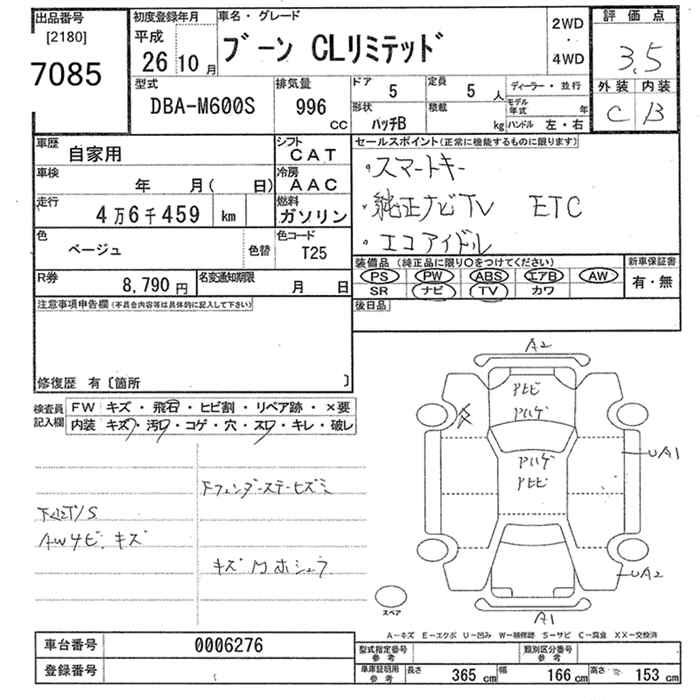 出品番号
[2180]
7085
初度登録年月
平成
26 10 月
車名・グレード
ブーン CLリミテッド
2WD
・
4WD
評価点
3.5
外装 内装
C B
型式
DBA-M600S
排気量
996
CC
ドア 5
定員 5 人
形状
ハッチB
積載
kg
ディーラー・並行
モデル年式 年
ハンドル 左・右
車歴 自家用
シフト CAT
車検 年 月( 日)
冷房 AAC
走行 4万6千459 km
燃料 ガソリン
色 ベージュ
色替
色コード T25
R券 8,790円
名変通知期限 月 日
セールスポイント(正常に機能するものに限ります)
・スマートキー
・純正ナビTV ETC
・エコアイドル
装備品(純正品に限り○をつけてください)
PS PW ABS エアB AW
SR ナビ TV カワ
新車保証書
有・無
後日品
注意事項申告欄(本員会内容等は具体的に記入して下さい)
修復歴 有〔箇所 〕
検査員記入欄
FW キズ・飛石・ヒビ割・リペア跡・×要
内装 キズ・汚レ・コゲ・穴・スレ・キレ・破レ
AWサビ、キズ
A2
UA1
UA2
A1
スペア
A-キズ E-エクボ U-凹み W-補修跡 S-サビ C-腐食 XX-交換済
車台番号 0006276
登録番号
型式指定番号
参考
類別区分番号
参考
車庫証明用
参考
長さ 365 cm
幅 166 cm
高さ 153 cm